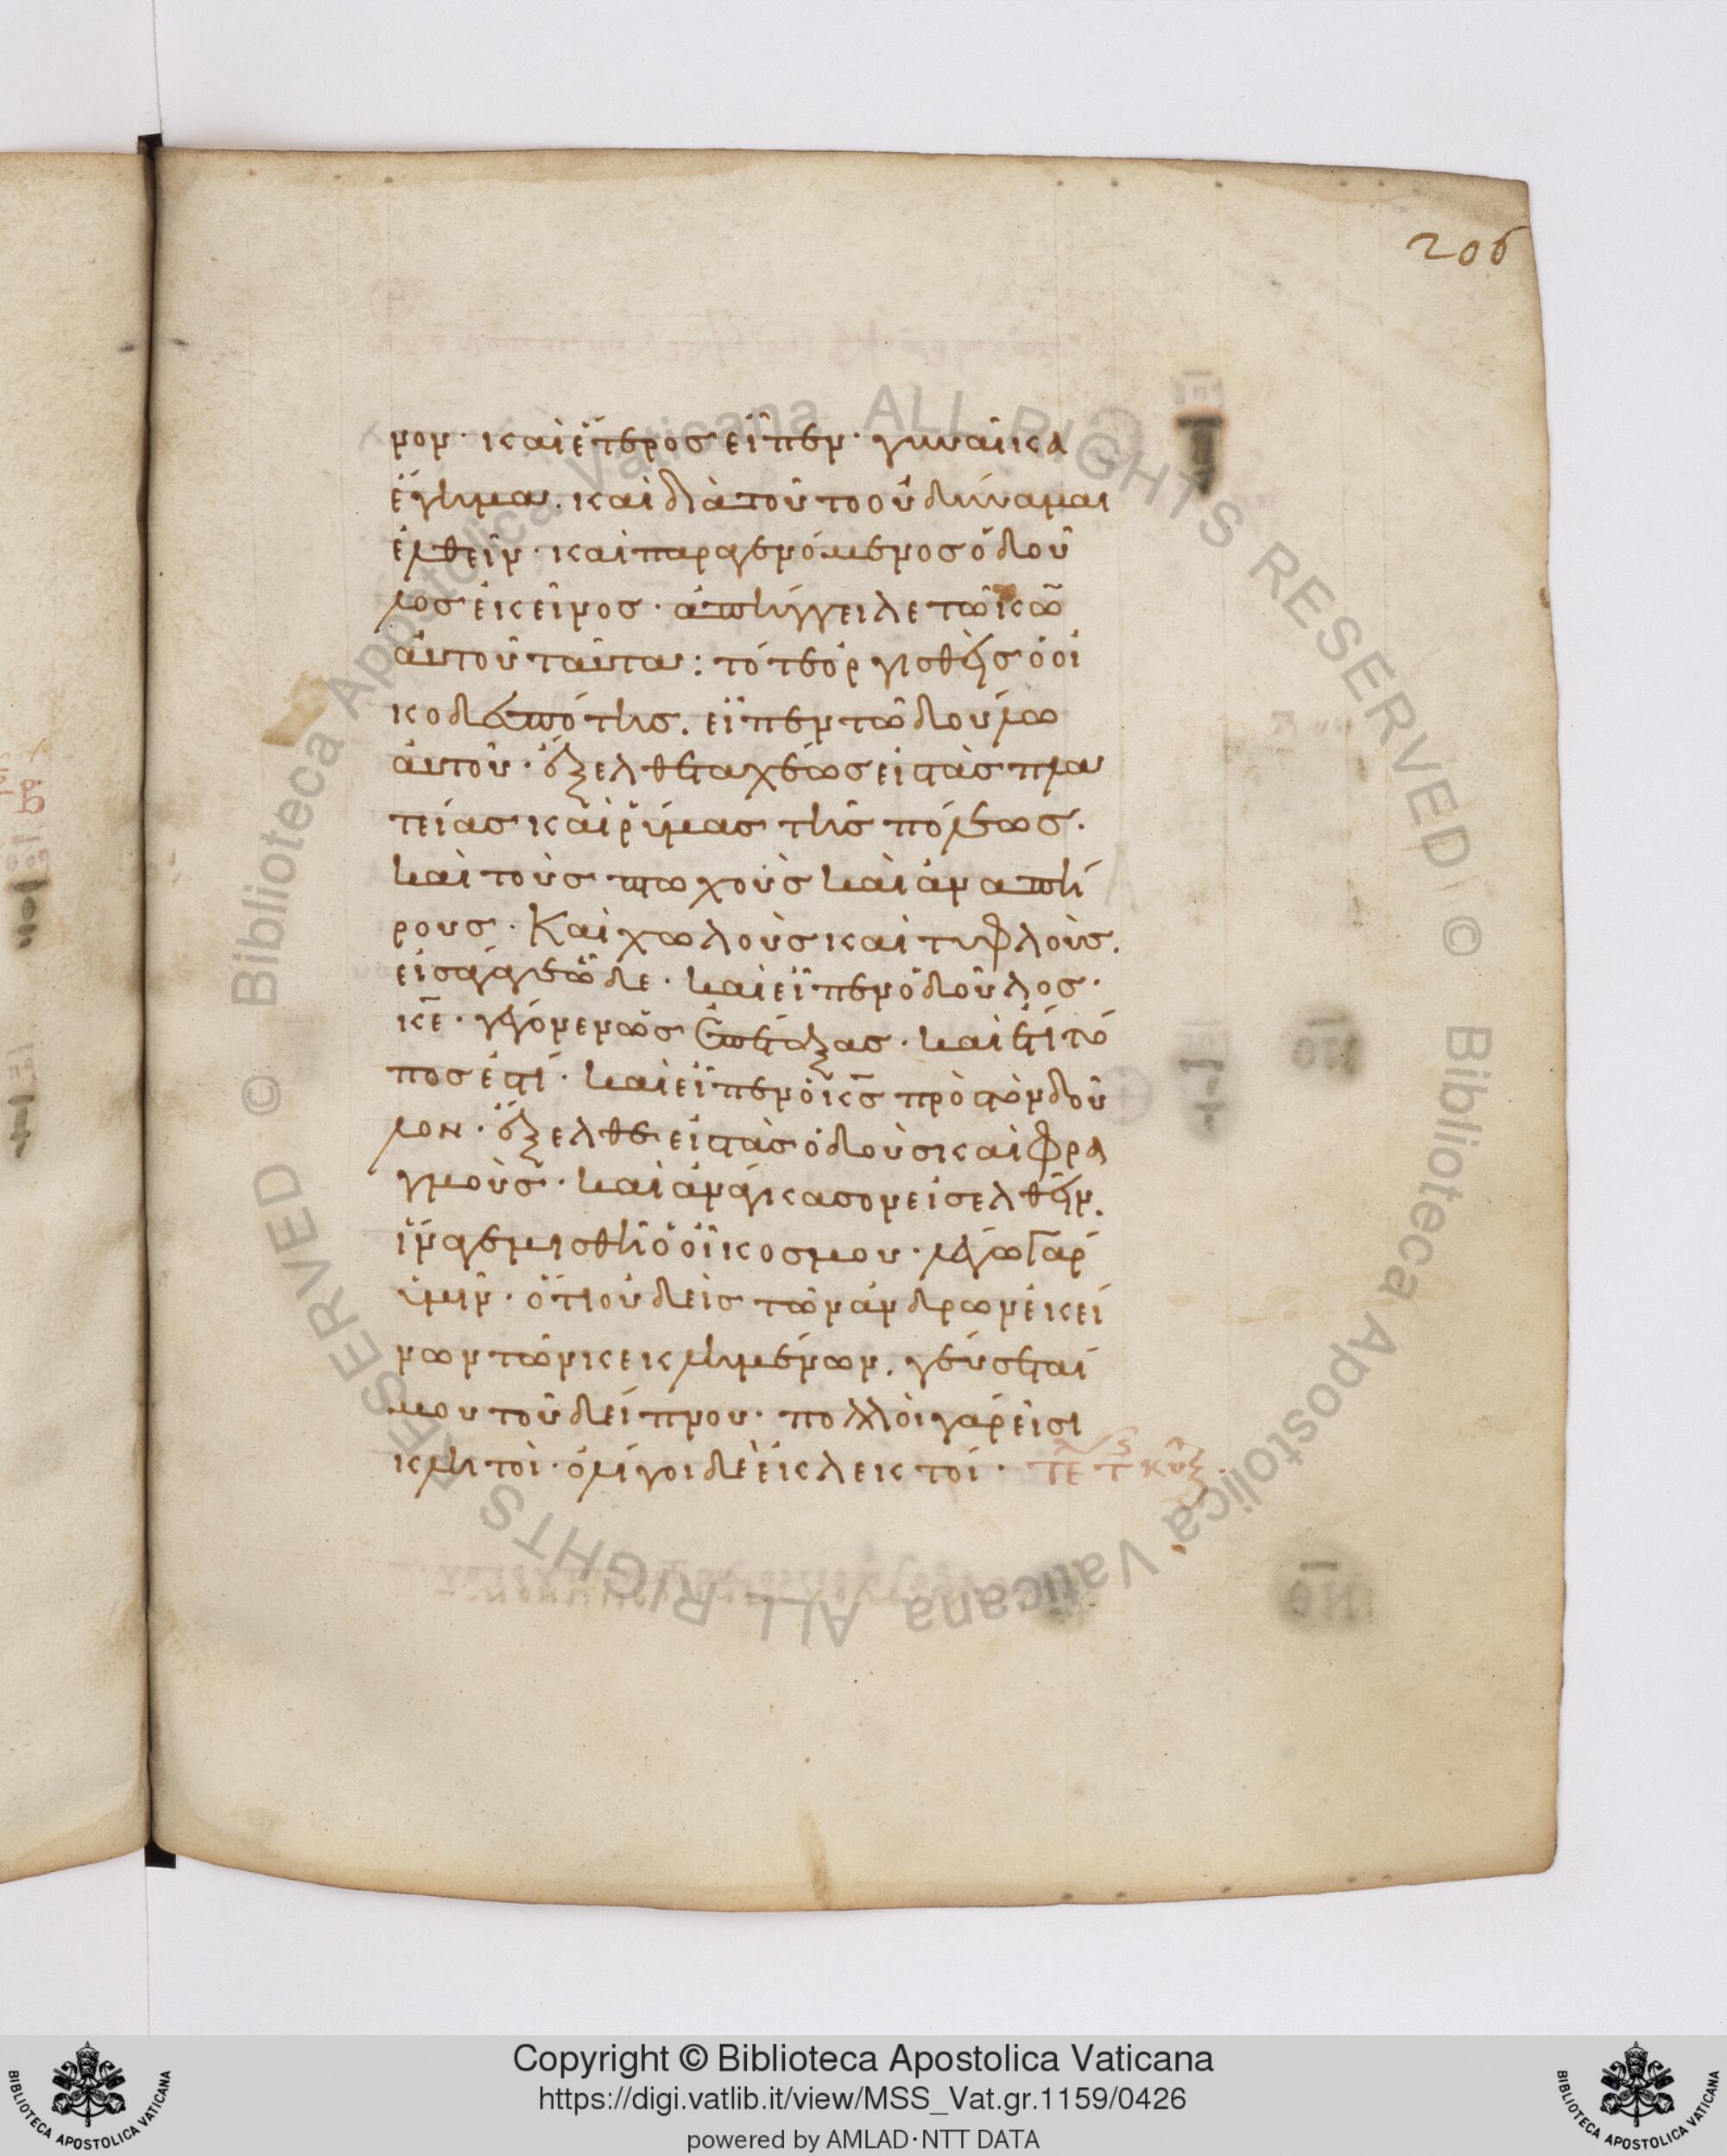 206
νον· καὶ ἕτερος εἶπεν· γυναῖκα
ἔγημα. καὶ διὰ τοῦτο οὐ δύναμαι
ἐλθεῖν· καὶ παραγενόμενος ὁ δοῦ
λος ἐκεῖνος· ἀπήγγειλε τῶ κω̅
αὐτοῦ ταῦτα: τότε ὀργισθεὶς ὁ οἰ
κοδεσπότης. εἶπεν τῶ δούλω
αὐτοῦ· ἔξελθε ταχέως εἰς τὰς πλα
τείας καὶ ῥύμας τῆς πόλεως.
καὶ τοὺς πτωχοὺς καὶ ἀναπή
ρους· Καὶ χωλοὺς καὶ τυφλοὺς.
εἰσάγαγε ὧδε· καὶ εἶπεν ὁ δοῦλος·
κε̅· γέγονεν ὡς ἐπέταξας· καὶ ἔτι τό
πος ἐστί· καὶ εἶπεν ὁ κς̅ πρὸς τὸν δοῦ
λον· ἔξελθε εἰς τὰς ὁδοὺς καὶ φρα
γμοὺς· καὶ ἀνάγκασον εἰσελθεῖν.
ἵνα γεμισθῆ ὁ οἶκος μου· λέγω γὰρ
ὑμῖν· ὅτι οὐδεὶς τῶν ἀνδρῶν ἐκεί
νων τῶν κεκλημένων. γεύσεταί
μου τοῦ δείπνου· πολλοὶ γάρ εἰσι
κλητοὶ· ὀλίγοι δὲ ἐκλεκτοί·
Copyright © Biblioteca Apostolica Vaticana
https://digi.vatlib.it/view/MSS_Vat.gr.1159/0426
powered by AMLAD·NTT DATA
BIBLIOTECA APOSTOLICA VATICANA
BIBLIOTECA APOSTOLICA VATICANA
© Biblioteca Apostolica Vaticana ALL RIGHTS RESERVED
© Biblioteca Apostolica Vaticana ALL RIGHTS RESERVED